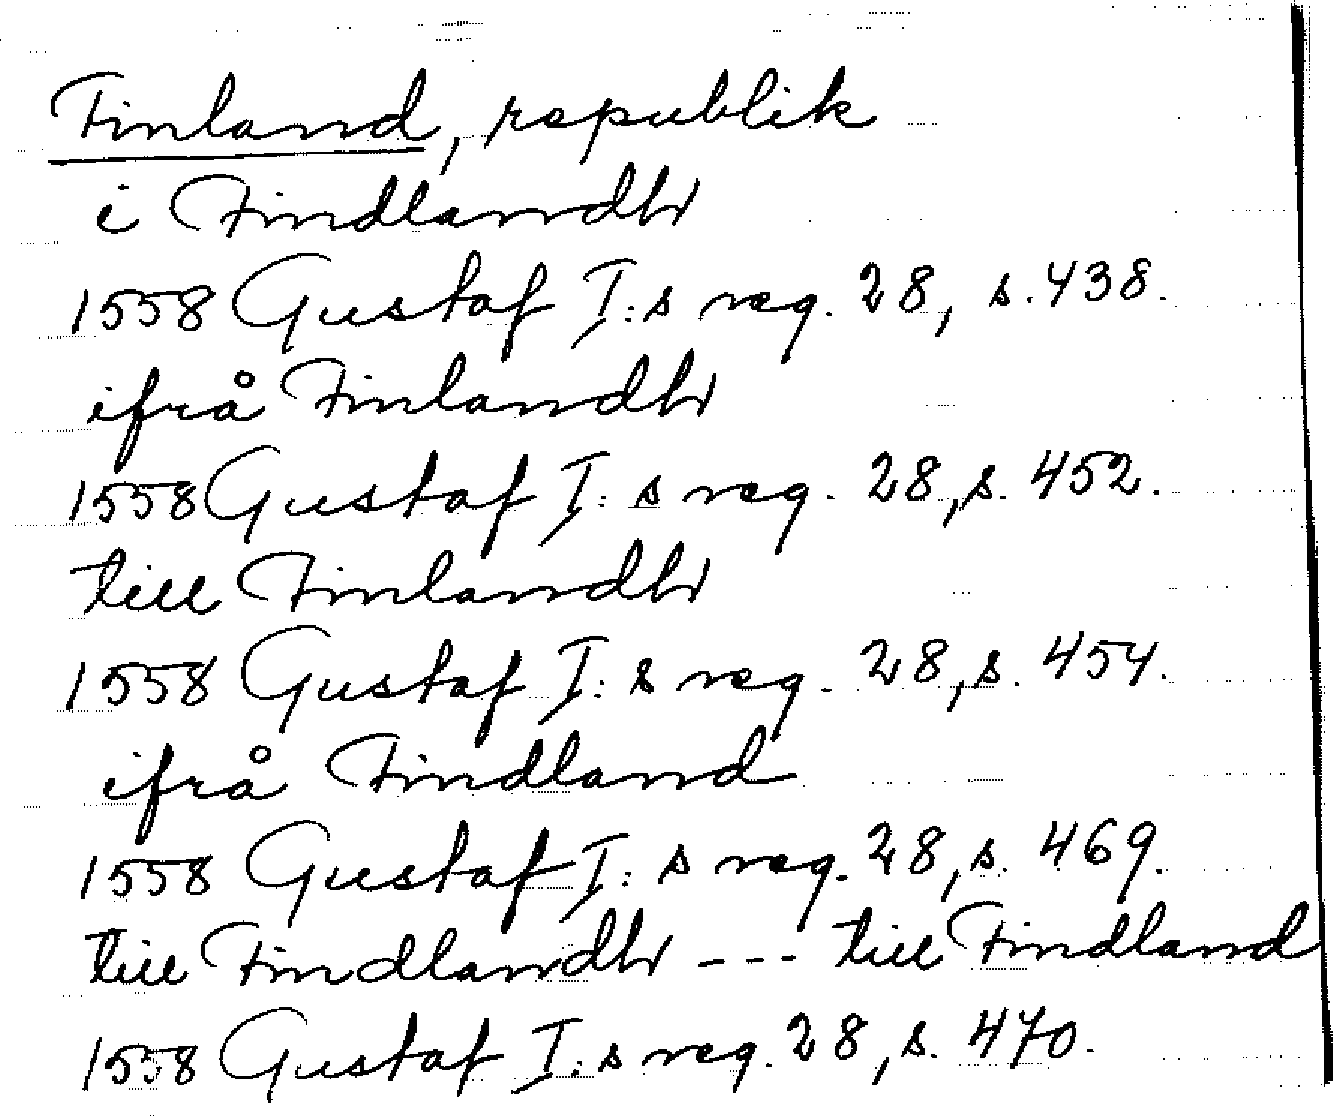 Finland, republik
i Findlandh
1558 Gustaf I:s reg. 28, s. 438.
ifrå Finlandh
1558 Gustaf I:s reg. 28, s. 452.
till Finlandh
1558 Gustaf I:s reg. 28, s. 454.
ifrå Findland
1558 Gustaf I:s reg. 28, s. 469.
till Findlandh - - - till Findland
1558 Gustaf I:s reg. 28, s. 470.